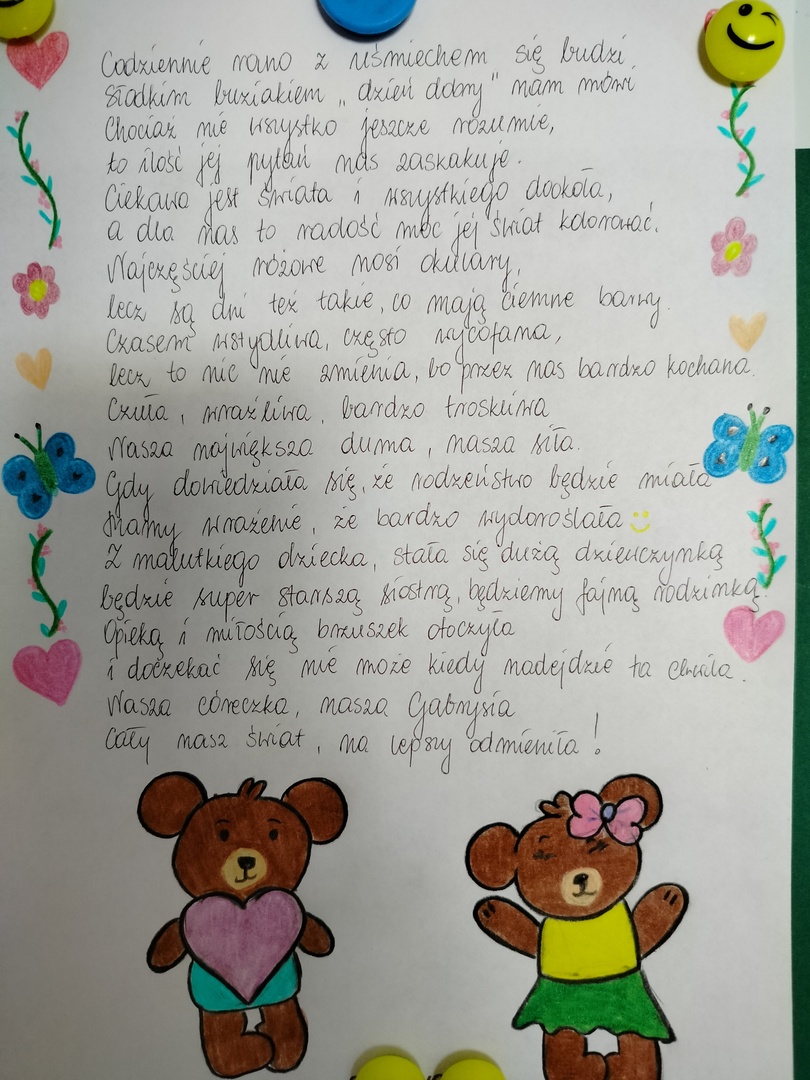 Codziennie rano z uśmiechem się budzi,
Słodkim buziakiem „dzień dobry" nam mówi.
Chociaż nie wszystko jeszcze rozumie,
to ilość jej pytań nas zaskakuje.
Ciekawa jest świata i wszystkiego dookoła,
a dla nas to radość móc jej świat kolorować.
Najczęściej różowe nosi okulary,
lecz są dni też takie, co mają ciemne barwy.
Czasem wstydliwa, często wycofana,
lecz to nic nie zmienia, bo przez nas bardzo kochana.
Czuła, wrażliwa, bardzo troskliwa
Nasza największa duma, nasza siła.
Gdy dowiedziała się, że rodzeństwo będzie miała
Mamy wrażenie, że bardzo wydoroślała
Z malutkiego dziecka, stała się dużą dziewczynką
będzie super starszą siostrą, będziemy fajną rodzinką.
Opieką i miłością brzuszek otoczyła
i doczekać się nie może kiedy nadejdzie ta chwila.
Nasza córeczka, nasza Gabrysia
Cały nasz świat, na lepszy odmieniła!